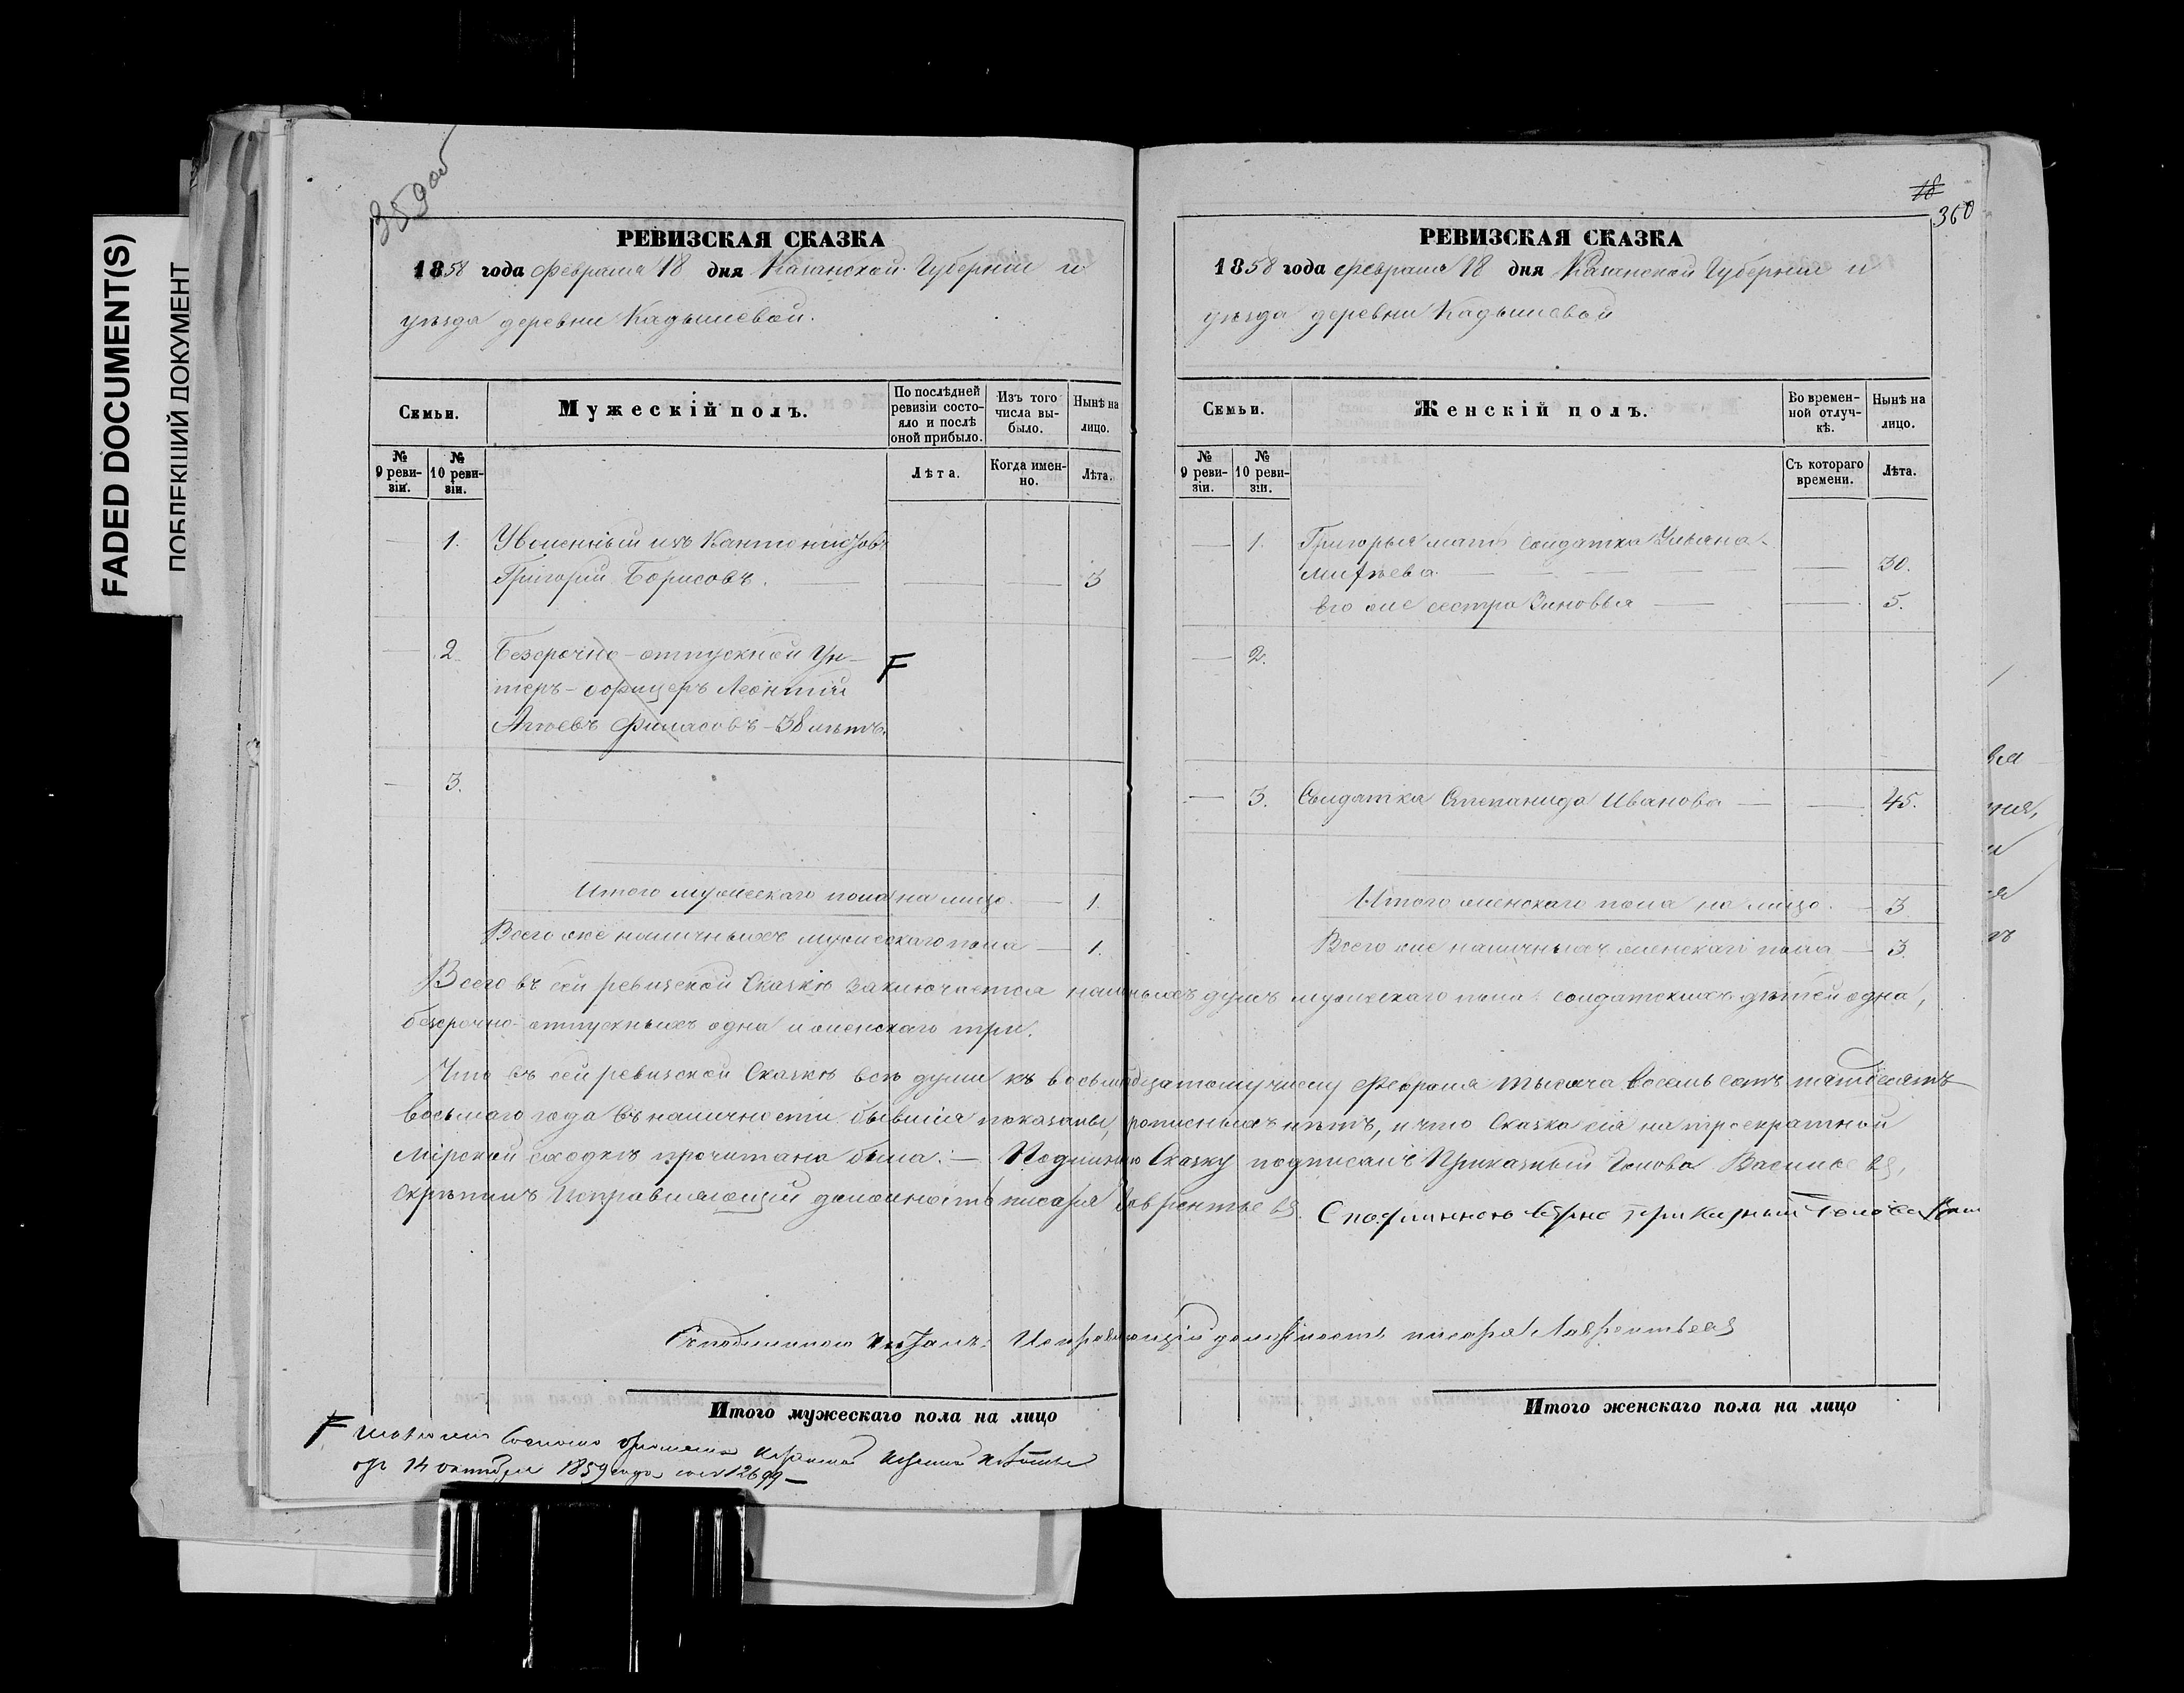 FADED DOCUMENT(S)
ПОБЛЕКШИЙ ДОКУМЕНТ
359 об
РЕВИЗСКАЯ СКАЗКА
1858 года Февраля 18 дня Казанской Губерніи и
уѣзда деревни Кадышевой.
Семьи.
Мужескій полъ.
По послѣдней ревизіи состояло и послѣ оной прибыло.
Изъ того числа выбыло.
Нынѣ на лицо.
№ 9 ревизіи.
№ 10 ревизіи.
Лѣта.
Когда именно.
Лѣта.
— 1. Уволенный изъ Кантонистовъ
Григорій Борисовъ. — — — 3
— 2. Безсрочно-отпускной Ун-
теръ-офицеръ Леонтій
Агѣевъ Филасовъ - 38 лѣтъ.
F
— 3.
Итого мужескаго пола на лицо. — 1.
Всего же наличныхъ мужескаго пола — 1.
18
360
РЕВИЗСКАЯ СКАЗКА
1858 года Февраля 18 дня Казанской Губерніи и
уѣзда деревни Кадышевой
Семьи.
Женскій полъ.
Во временной отлучкѣ.
Нынѣ на лицо.
№ 9 ревизіи.
№ 10 ревизіи.
Съ котораго времени.
Лѣта.
— 1. Григорья мать солдатка Ульяна
— — 30.
Его же сестра Зиновья — — 5.
— 2.
— 3. Солдатка Степанида Иванова — — 45.
Итого женскаго пола на лицо. — 3
Всего же наличныхъ женскаго пола — 3.
Всего въ сей ревизской Сказкѣ заключается наличныхъ душъ мужескаго пола: солдатскихъ дѣтей одна,
безсрочно-отпускныхъ одна и женскаго три.
Что въ сей ревизской Сказкѣ всѣ души къ восьмнадцатому числу Февраля тысяча восемь сотъ пятдесятъ
восьмаго года въ наличности бывшія показаны, прописныхъ нѣтъ, и что Сказка сія на троекратной
Мірской сходкѣ прочитана была. — Подлинную Сказку подписалъ Приказный Голова Васильевъ,
скрѣпилъ Исправляющій должность писаря Лаврентьевъ. Съ подлинною вѣрно Приказный Голова
Съ подлинною читалъ: Исправляющій должность писаря Лаврентьевъ
Итого мужескаго пола на лицо
Итого женскаго пола на лицо
F
14 октября 1859 года за № 12699 —